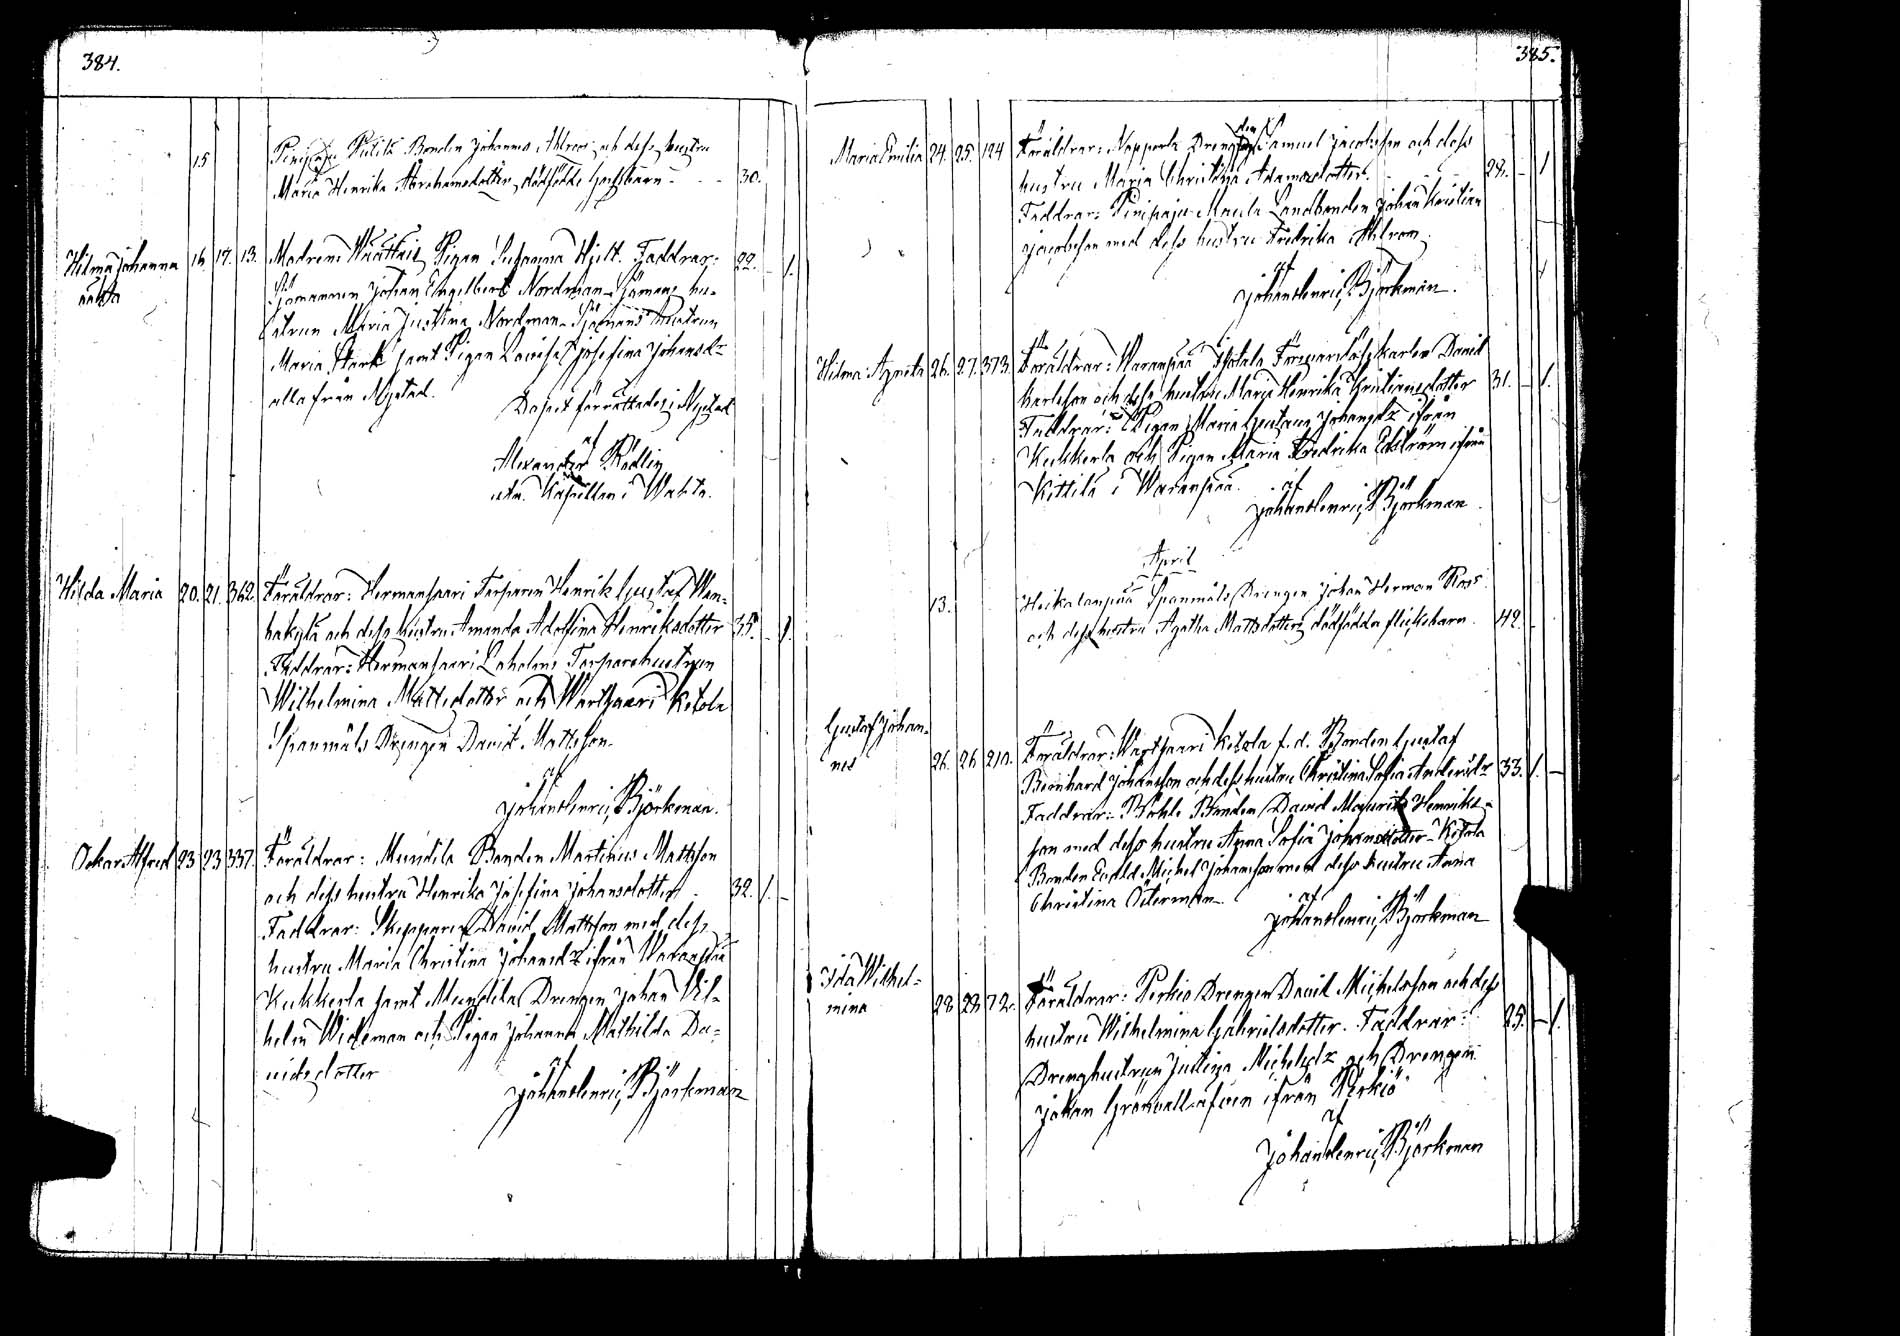 384.
15 Pinipaju Pietilä Bonden Johannes Ahlroos och dess hustru
Maria Henrika Abrahamsdotter, dödfödde Gossebarn - - - 30.
Hilma Johanna 16. 17. 13. Modren: Pigan Susanna Hjelt. Faddrar: 22. - 1.
oäkta Sjömannen Johan Engelbert Nordman Sjömans hu-
strun Maria Justina Nordman Sjömans hustrun
Maria Stark samt Pigan Lovisa Josefina Johansdr
alla från Nystad.
Dopet förrättades i Nystad
af
Alexander Rödlin
Kapellan i
Hilda Maria 20. 21. 362. Föräldrar: Hermansaari Torparen Henrik Gustaf Wan-
hakylä och dess hustru Amanda Adolfina Henriksdotter 35. - 1.
Faddrar: Hermansaari Laholms Torparehustrun
Wilhelmina Mattsdotter och Wartsaari Ketola
Spanmåls Drengen David Mattsson.
af
Johan Henric Björkman.
Oskar Alfred 23 23 337. Föräldrar: Mundila Bonden Martinus Mattsson
och dess hustru Henrika Josefina Johansdotter. 32. 1. -
Faddrar: Skepparen David Mattsson med dess
hustru Maria Christina Johansdr ifrån Waranpää
Kukkerla samt Mundila Drengen Johan Vil-
helm Wideman och Pigan Johanna Mathilda Da-
vidsdotter
af
Johan Henric Björkman
385.
Maria Emilia 24. 25. 124 Föräldrar: Nopperla Drengen Samuel Jacobsson och dess
hustru Maria Christina Adamsdotter. 28. - 1
Faddrar: Pinipaju Maula Landbonden Johan Kristian
Jacobsson med dess hustru Fredrika Ahlroos.
af
Johan Henric Björkman.
Hilma Agneta 26. 27. 373. Föräldrar: Waranpää Försvarslöskarlen David
Karlsson och dess hustru Maria Henrika Kristiansdotter 31. - 1.
Faddrar: Pigan Maria Gustava Johansdr ifrån
Kukkerla och Pigan Maria Fredrika Edström ifrån
Kittilä i Waranpää. af
Johan Henric Björkman
April
13. Heikalanpää Spanmåls Drengen Johan Herman Roos
och dess hustru Agatha Mattsdotters dödfödda flickebarn. 42. -
Gustaf Johan-
nes 26. 26 210. Föräldrar: Wartsaari Ketola f.d. Bonden Gustaf
Bernhard Johansson och dess hustru Christina Sofia Andersdr 33. 1. -
Faddrar: Pöhlö Bonden David Mauritz Henriks-
son med dess hustru Anna Sofia Johansdotter Ketola
Bonden Evald Michel Johansson med dess hustru Anna
Christina Österman.
af
Johan Henric Björkman
Ida Wilhel-
mina 28 28 72. Föräldrar: Perkiö Drengen David Michelsson och dess
hustru Wilhelmina Gabrielsdotter. Faddrar: 25. - 1.
Drenghustrun Justina Michelsdr och Drengen
Johan Grönvall äfven ifrån Perkiö
af
Johan Henric Björkman